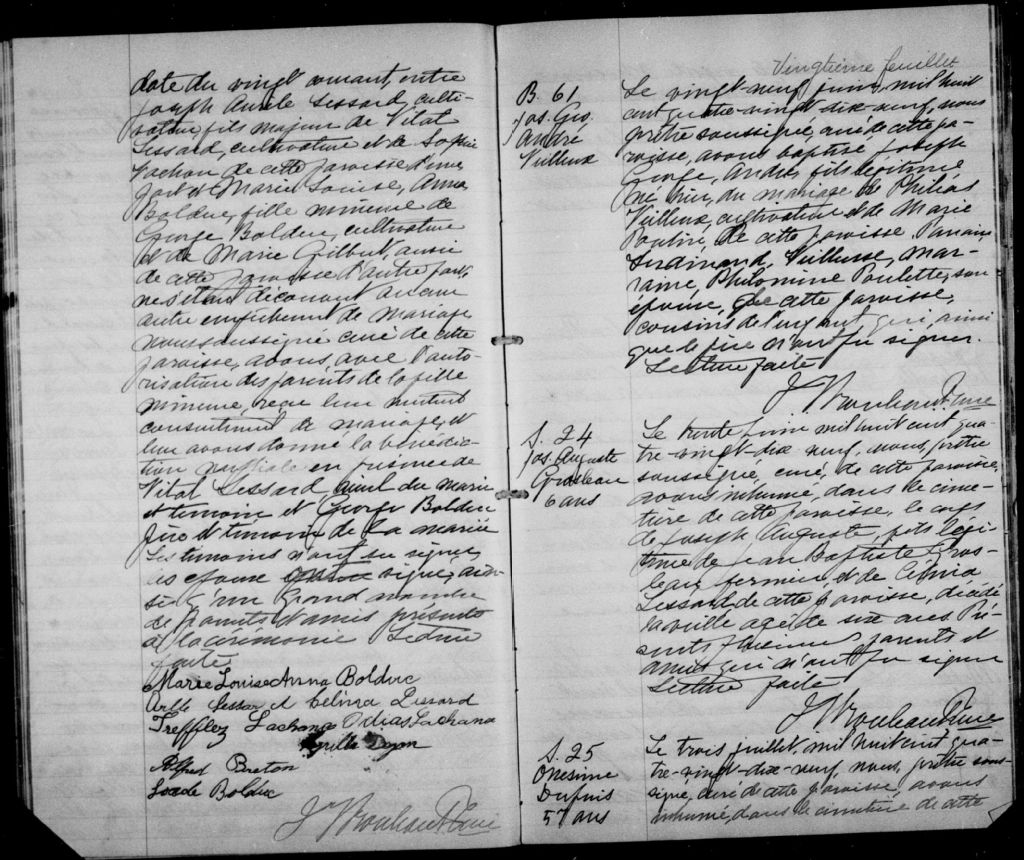 date du vingt courant, entre
Joseph Aurèle Lessard, culti-
vateur, fils majeur de Vital
Lessard, cultivateur et de Sophie
Vachon de cette paroisse d'une
part et Marie Louise, Anna
Bolduc, fille mineure de
George Bolduc, cultivateur
et de Marie Gilbert, aussi
de cette paroisse d'autre part,
ne s'étant découvert aucun
autre empêchement de mariage
nous soussigné curé de cette
paroisse, avons, avec l'auto-
risation des parents de la fille
mineure, reçu leur mutuel
consentement de mariage, et
leur avons donné la bénédic-
tion nuptiale en présence de
Vital Lessard, du marié
et temoin et George Bolduc
père et témoin de la mariée
Les temoins n'ont su signer,
les epoux signé, ain-
si qu'un grand nombre
de parents et amis présents
à la cérémonie Lecture
faite
Marie Louise Anna Bolduc
Lessard Célina Lessard
Treffley Lachance Odias Lachance
Doyon
Alfred Breton
Bolduc
J Rouleau Ptre
Vingtième feuillet
B. 61
Jos. Geo.
André
Veilleux
Le vingt-neuf juin, mil huit
cent quatre-vingt-dix-neuf, nous
prêtre soussigné, curé de cette pa-
roisse, avons baptisé Joseph
George, André, fils légitime
né hier, du mariage de Philias
Veilleux, cultivateur et de Marie
Poulin, de cette paroisse. Parrain,
Ferdinand, Veilleux, mar-
raine, Philomine Poulette, son
épouse, de cette paroisse,
cousins de l'enfant qui, ainsi
que le père n'ont pu signer.
Lecture faite
J Rouleau Ptre
S. 24
Jos. Auguste
Grosleau
6 ans
Le trente juin mil huit cent qua-
tre-vingt-dix neuf, nous, prêtre
soussigné, curé, de cette paroisse,
avons inhumé, dans le cime-
tière de cette paroisse, le corps
de Joseph Auguste, fils légi-
time de Jean Baptiste Gros-
leau, fermier, et de Célina
Lessard de cette paroisse, décédé
la veille agé de six ans. Pré-
sents plusieurs parents et
amis qui n'ont pu signer
Lecture faite
J Rouleau Ptre
S. 25
Onesime
Dupuis
57 ans
Le trois juillet, mil huit cent qua-
tre-vingt-dix-neuf, nous, prêtre sous-
signé, curé de cette paroisse, avons
inhumé, dans le cimetière de cette